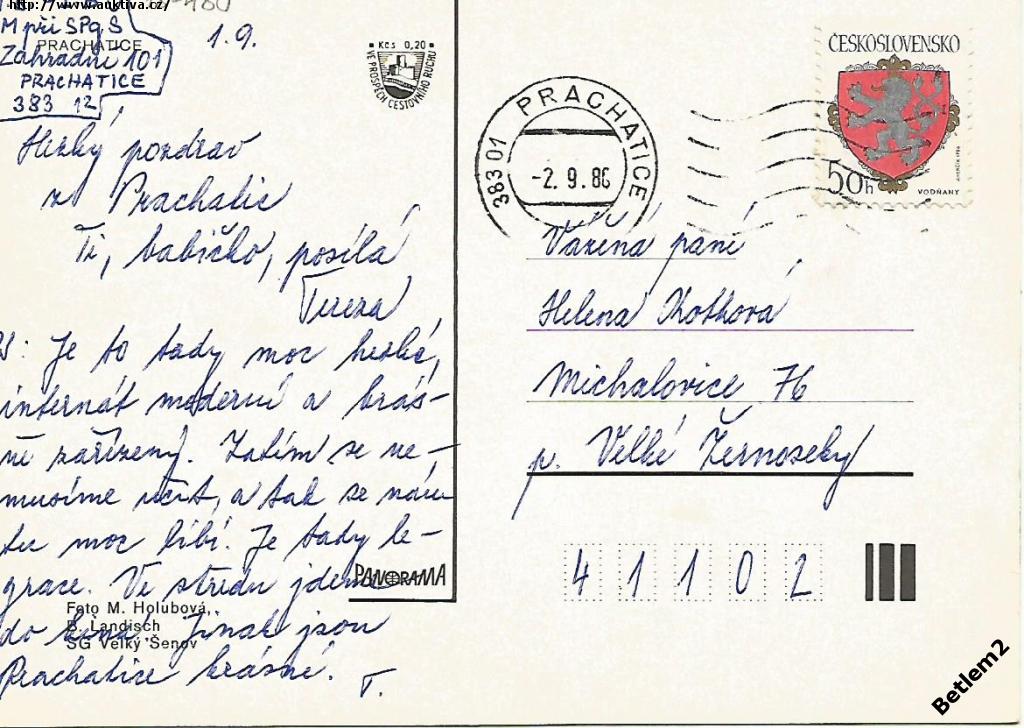 http://www.auktiva.cz/
M při SPgŠ
PRACHATICE
Zahradní 101
PRACHATICE
383 12
1.9.
Kčs 0,20
VE PROSPĚCH CESTOVNÍHO RUCHU
Hezký pozdrav
z Prachatic
Ti, babičko, posílá
Tereza
PS: Je to tady moc hezké,
internát moderní a krás-
ně zařízený. Zatím se ne-
musíme učit, a tak se nám
tu moc líbí. Je tady le-
grace. Ve středu jdeme
do kina. Jinak jsou
Prachatice krásné. T.
Foto M. Holubová,
B. Landisch
SG Velký Šenov
PANORAMA
383 01 PRACHATICE
-2.9.86
ČESKOSLOVENSKO
50h
VODŇANY
Vážená paní
Helena Kotková
Michalovice 76
p. Velké Žernoseky
41102
Betlem2